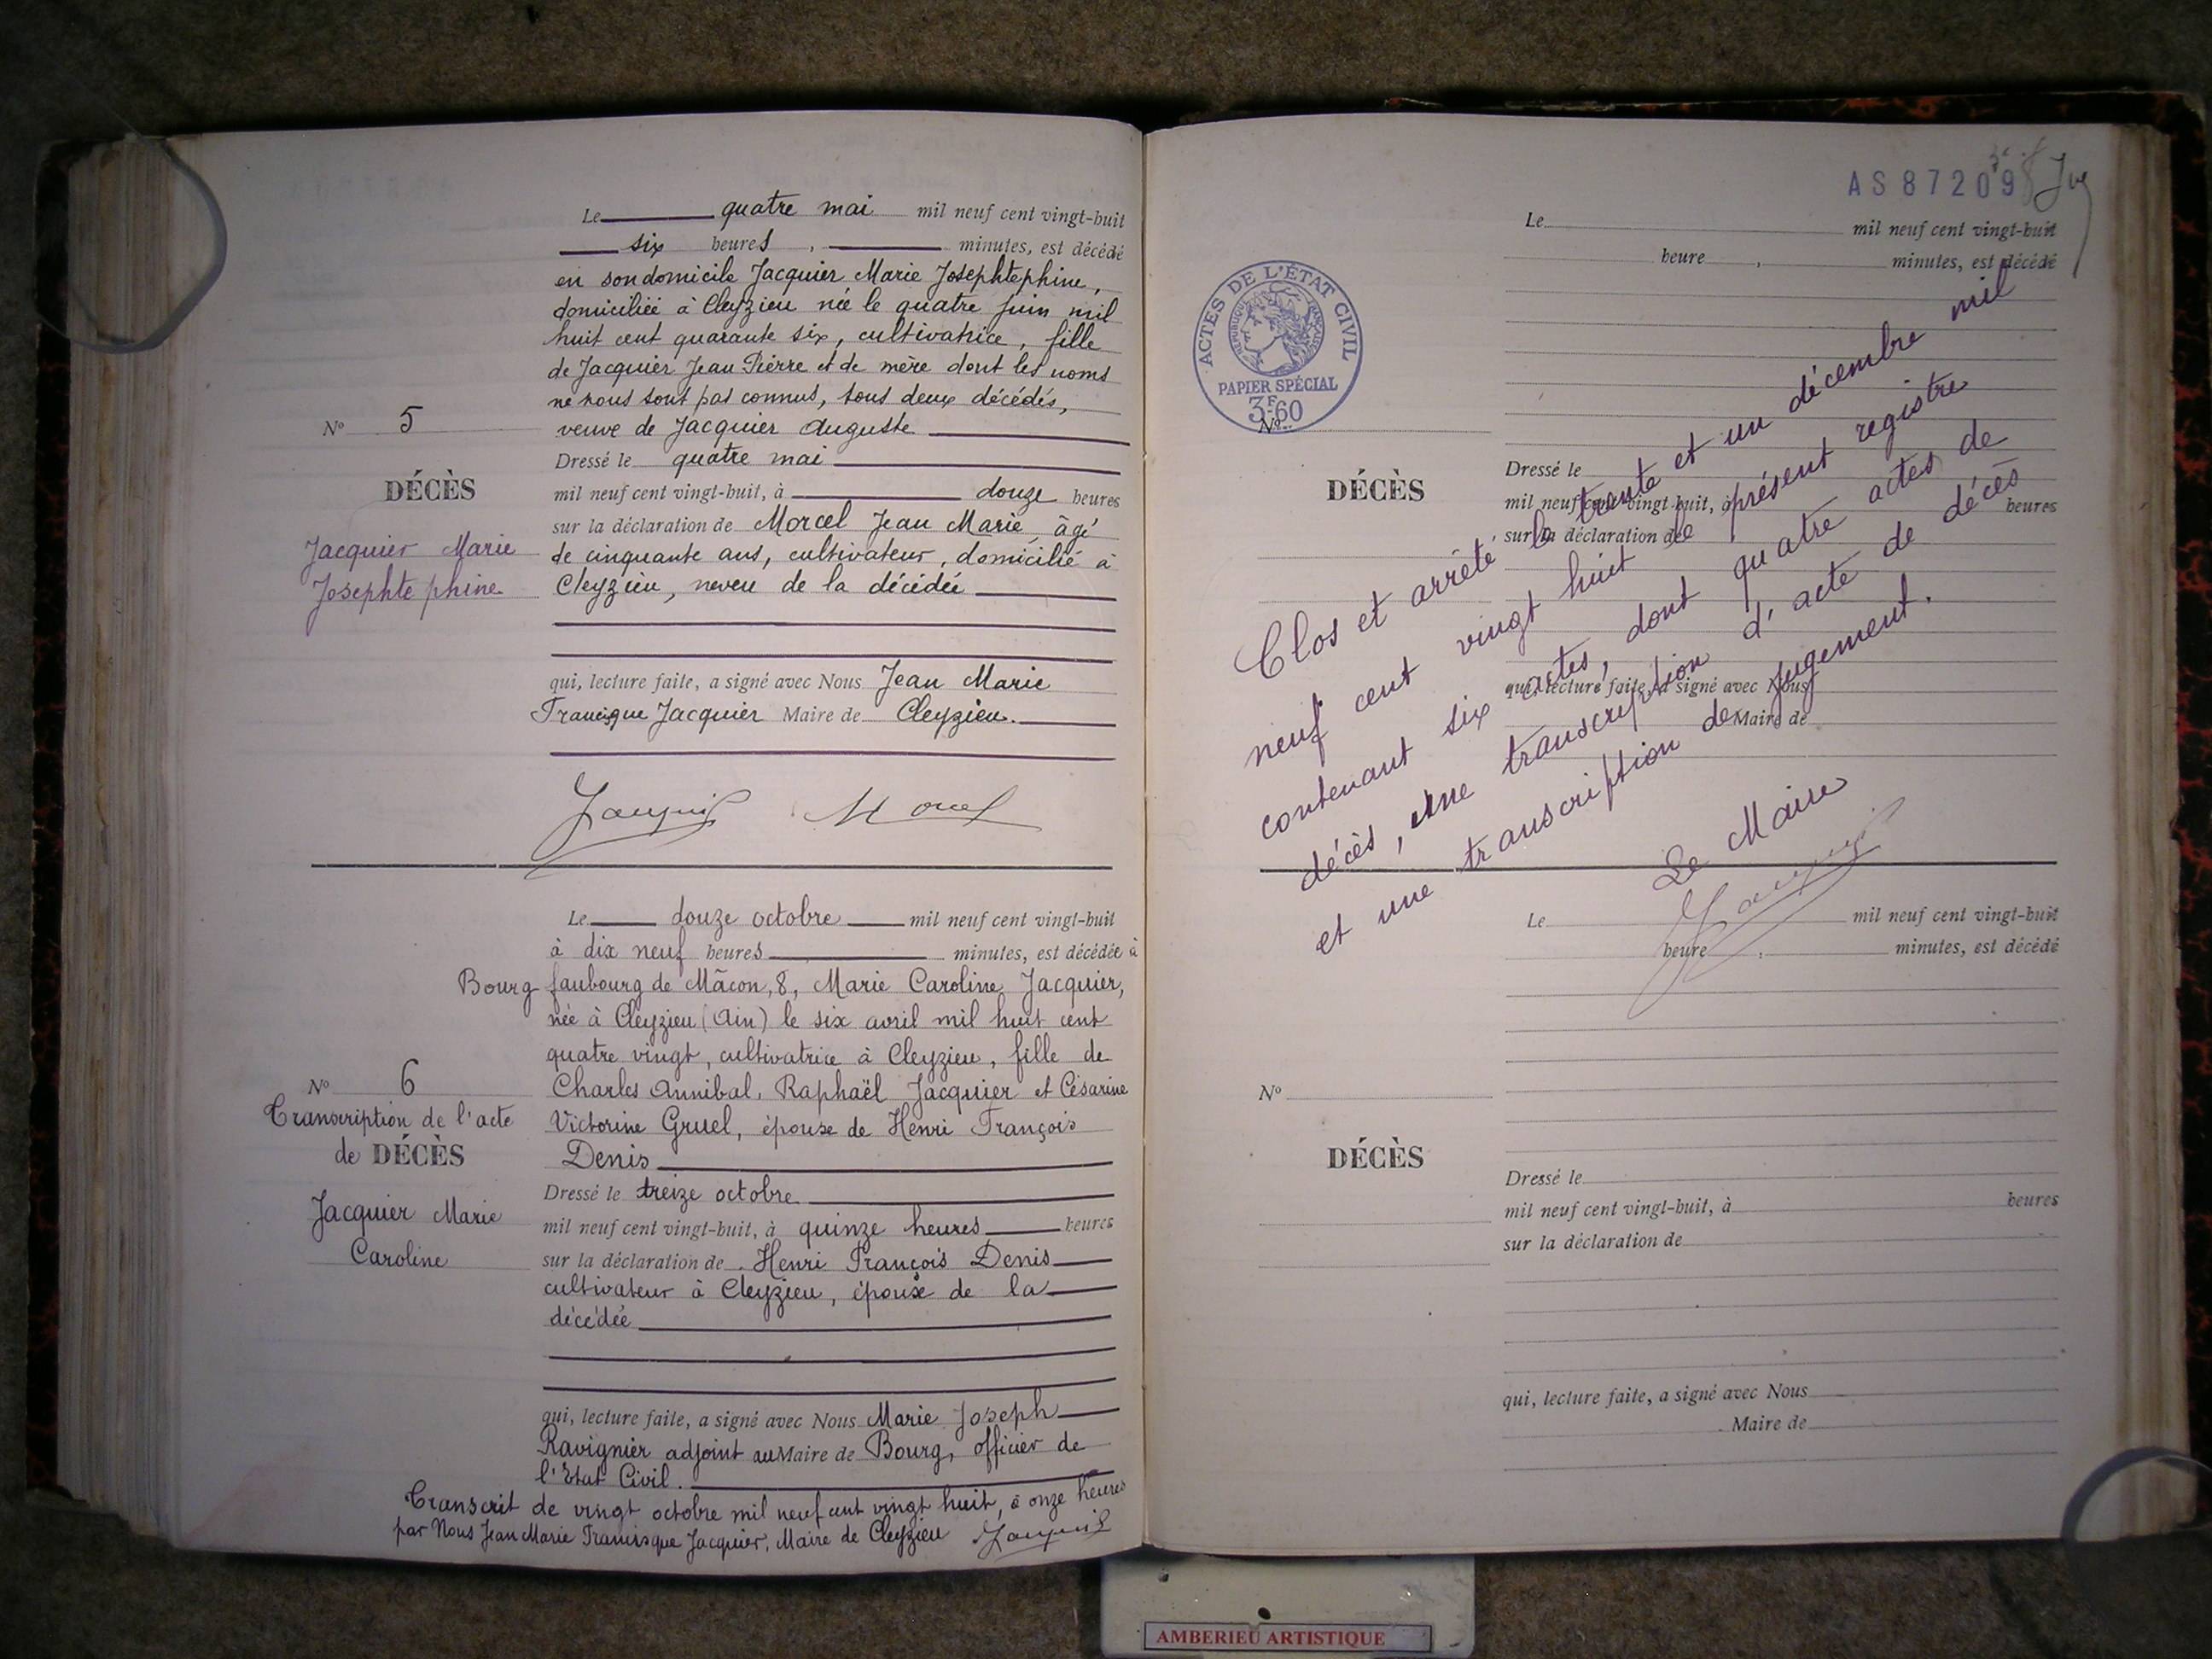 Le quatre mai mil neuf cent vingt-huit
six heures, minutes, est décédé
en son domicile Jacquier Marie Josephtephine,
domiciliée à Cleyzieu née le quatre juin mil
huit cent quarante six, cultivatrice, fille
de Jacquier Jean Pierre et de mère dont les noms
ne nous sont pas connus, tous deux décédés,
veuve de Jacquier Auguste
Nº 5
DÉCÈS
Jacquier Marie
Josephtephine
Dressé le quatre mai
mil neuf cent vingt-huit, à douze heures
sur la déclaration de Morcel Jean Marie, âgé
de cinquante ans, cultivateur, domicilié à
Cleyzieu, neveu de la décédée
qui, lecture faite, a signé avec Nous Jean Marie
Francisque Jacquier Maire de Cleyzieu.
Jacquier Morcel
Le douze octobre mil neuf cent vingt-huit
à dix neuf heures minutes, est décédée à
Bourg faubourg de Mâcon, 8, Marie Caroline Jacquier,
née à Cleyzieu (Ain) le six avril mil huit cent
quatre vingt, cultivatrice à Cleyzieu, fille de
Charles Annibal, Raphaël Jacquier et Césarine
Victorine Gruel, épouse de Henri François
Denis
Nº 6
Transcription de l'acte
de DÉCÈS
Jacquier Marie
Caroline
Dressé le treize octobre
mil neuf cent vingt-huit, à quinze heures heures
sur la déclaration de Henri François Denis
cultivateur à Cleyzieu, époux de la
décédée
qui, lecture faite, a signé avec Nous Marie Joseph
Ravignier adjoint au Maire de Bourg, officier de
l'Etat Civil.
Transcrit de vingt octobre mil neuf cent vingt huit, à onze heures
par Nous Jean Marie Francisque Jacquier, Maire de Cleyzieu Jacquier
AS 87209
ACTES DE L'ÉTAT CIVIL
RÉPUBLIQUE FRANÇAISE
PAPIER SPÉCIAL
3F.60
Le mil neuf cent vingt-huit
heure, minutes, est décédé
Nº
DÉCÈS
Dressé le
mil neuf cent vingt-huit, à heures
sur la déclaration de
qui, lecture faite, a signé avec Nous
Maire de
Clos et arrêté le trente et un décembre mil
neuf cent vingt huit le présent registre
contenant six actes, dont quatre actes de
décès, une transcription d'acte de décès
et une transcription de jugement.
Le Maire
Jacquier
Le mil neuf cent vingt-huit
heure, minutes, est décédé
Nº
DÉCÈS
Dressé le
mil neuf cent vingt-huit, à heures
sur la déclaration de
qui, lecture faite, a signé avec Nous
Maire de
AMBERIEU ARTISTIQUE